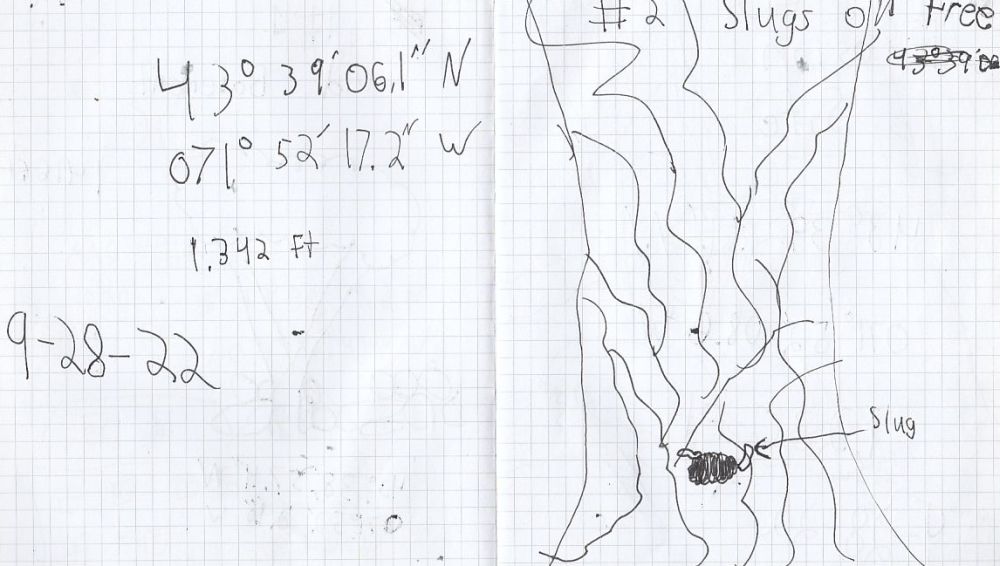 43° 39' 06.1" N
071° 52' 17.2" W
1.342 Ft
9-28-22
#2 Slugs on Tree
Slug